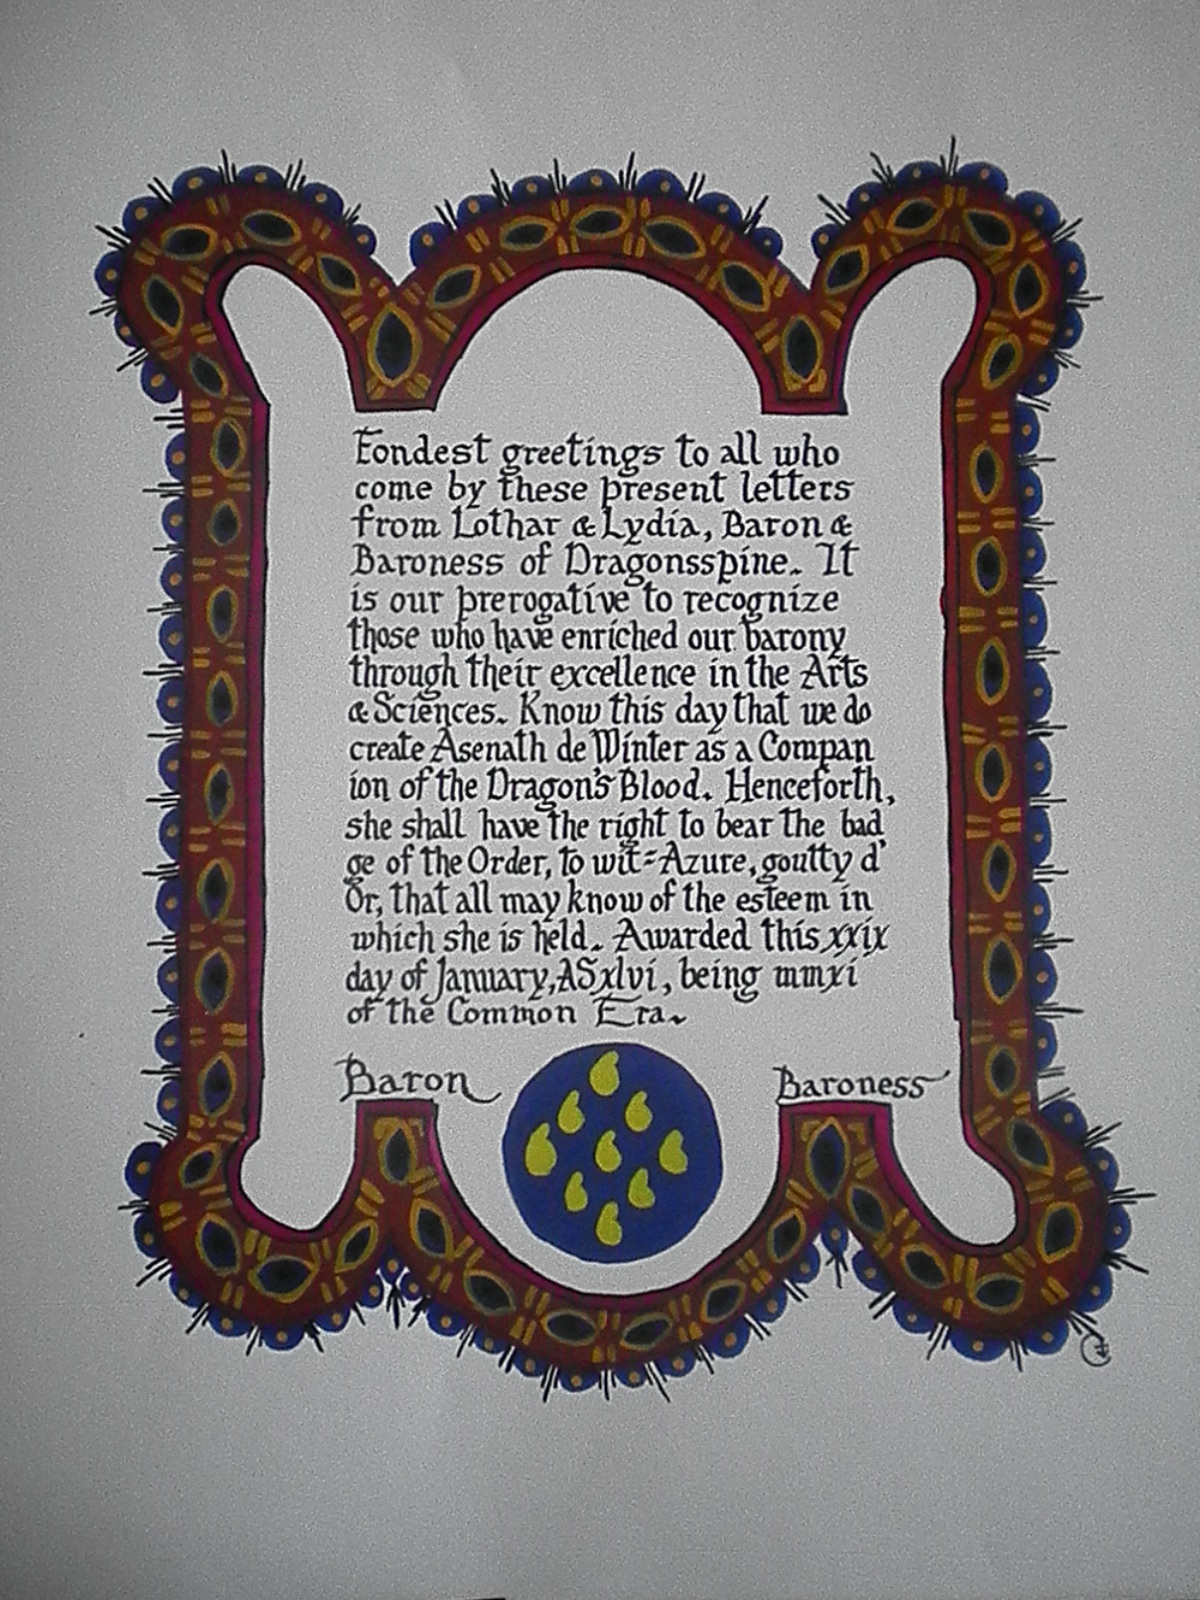 Fondest greetings to all who
come by these present letters
from Lothar & Lydia, Baron &
Baroness of Dragonsspine. It
is our prerogative to recognize
those who have enriched our barony
through their excellence in the Arts
& Sciences. Know this day that we do
create Asenath de Winter as a Compan
ion of the Dragon's Blood. Henceforth,
she shall have the right to bear the bad
ge of the Order, to wit = Azure, goutty d'
Or, that all may know of the esteem in
which she is held. Awarded this xxix
day of January, AS xlvi, being mmxi
of the Common Era.
Baron Baroness